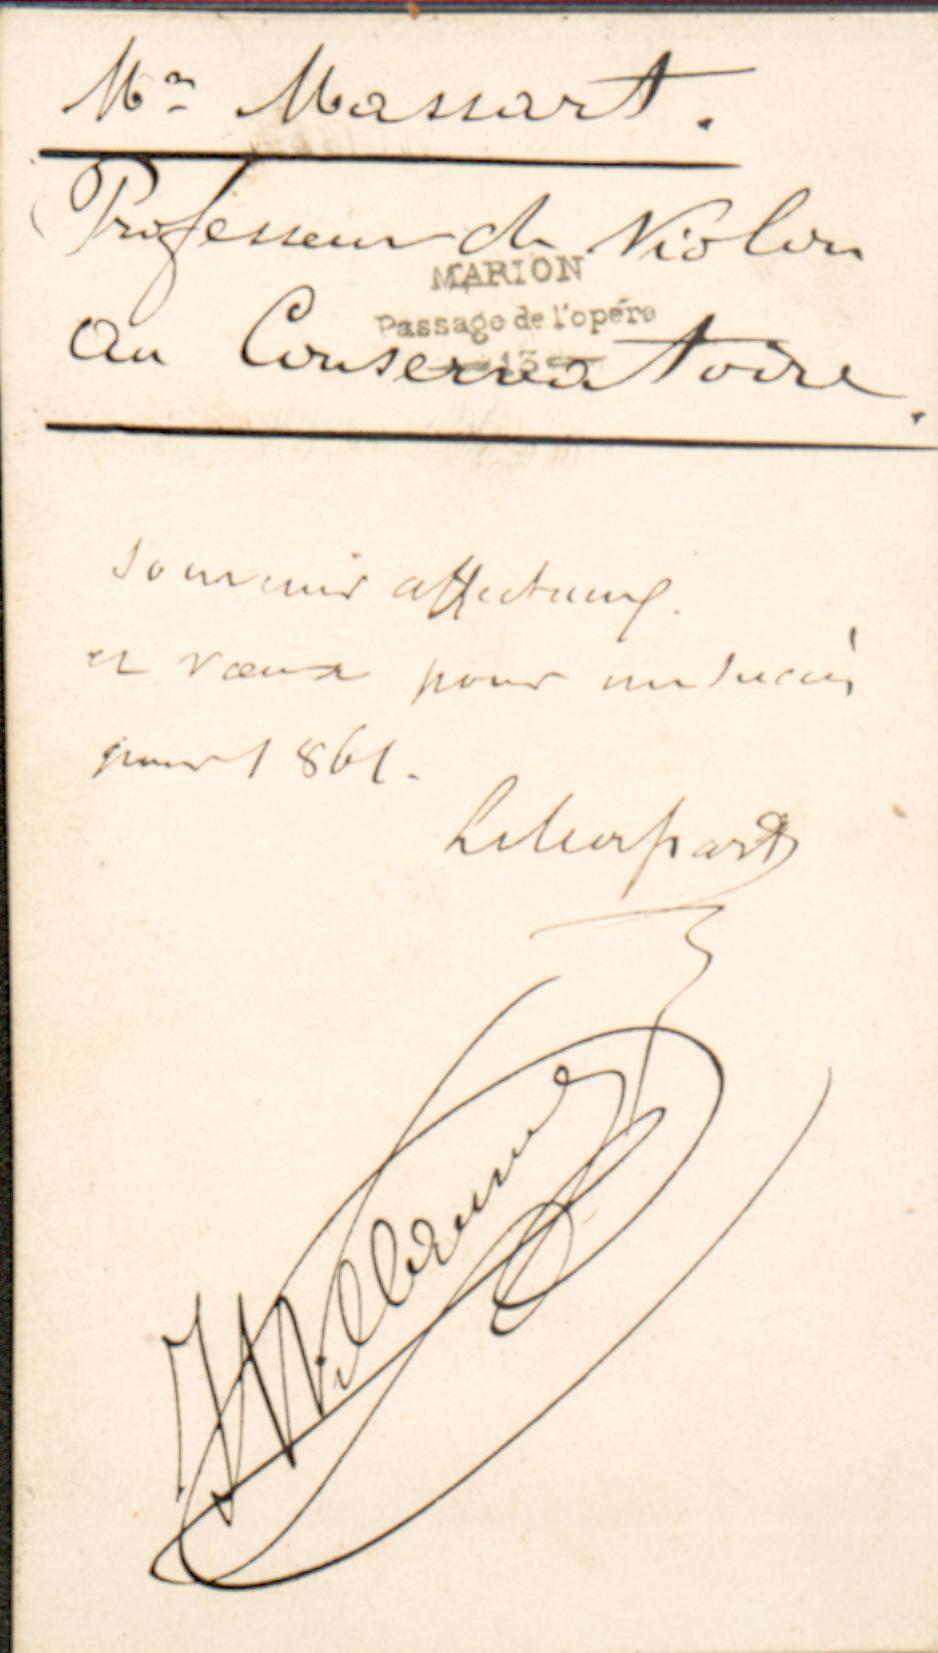 Mr Massart.
Professeur de Violon
MARION
Passage de l'opéra
13
au Conservatoire.
Souvenir affectueux.
et vœux pour un succès
pour 1861.